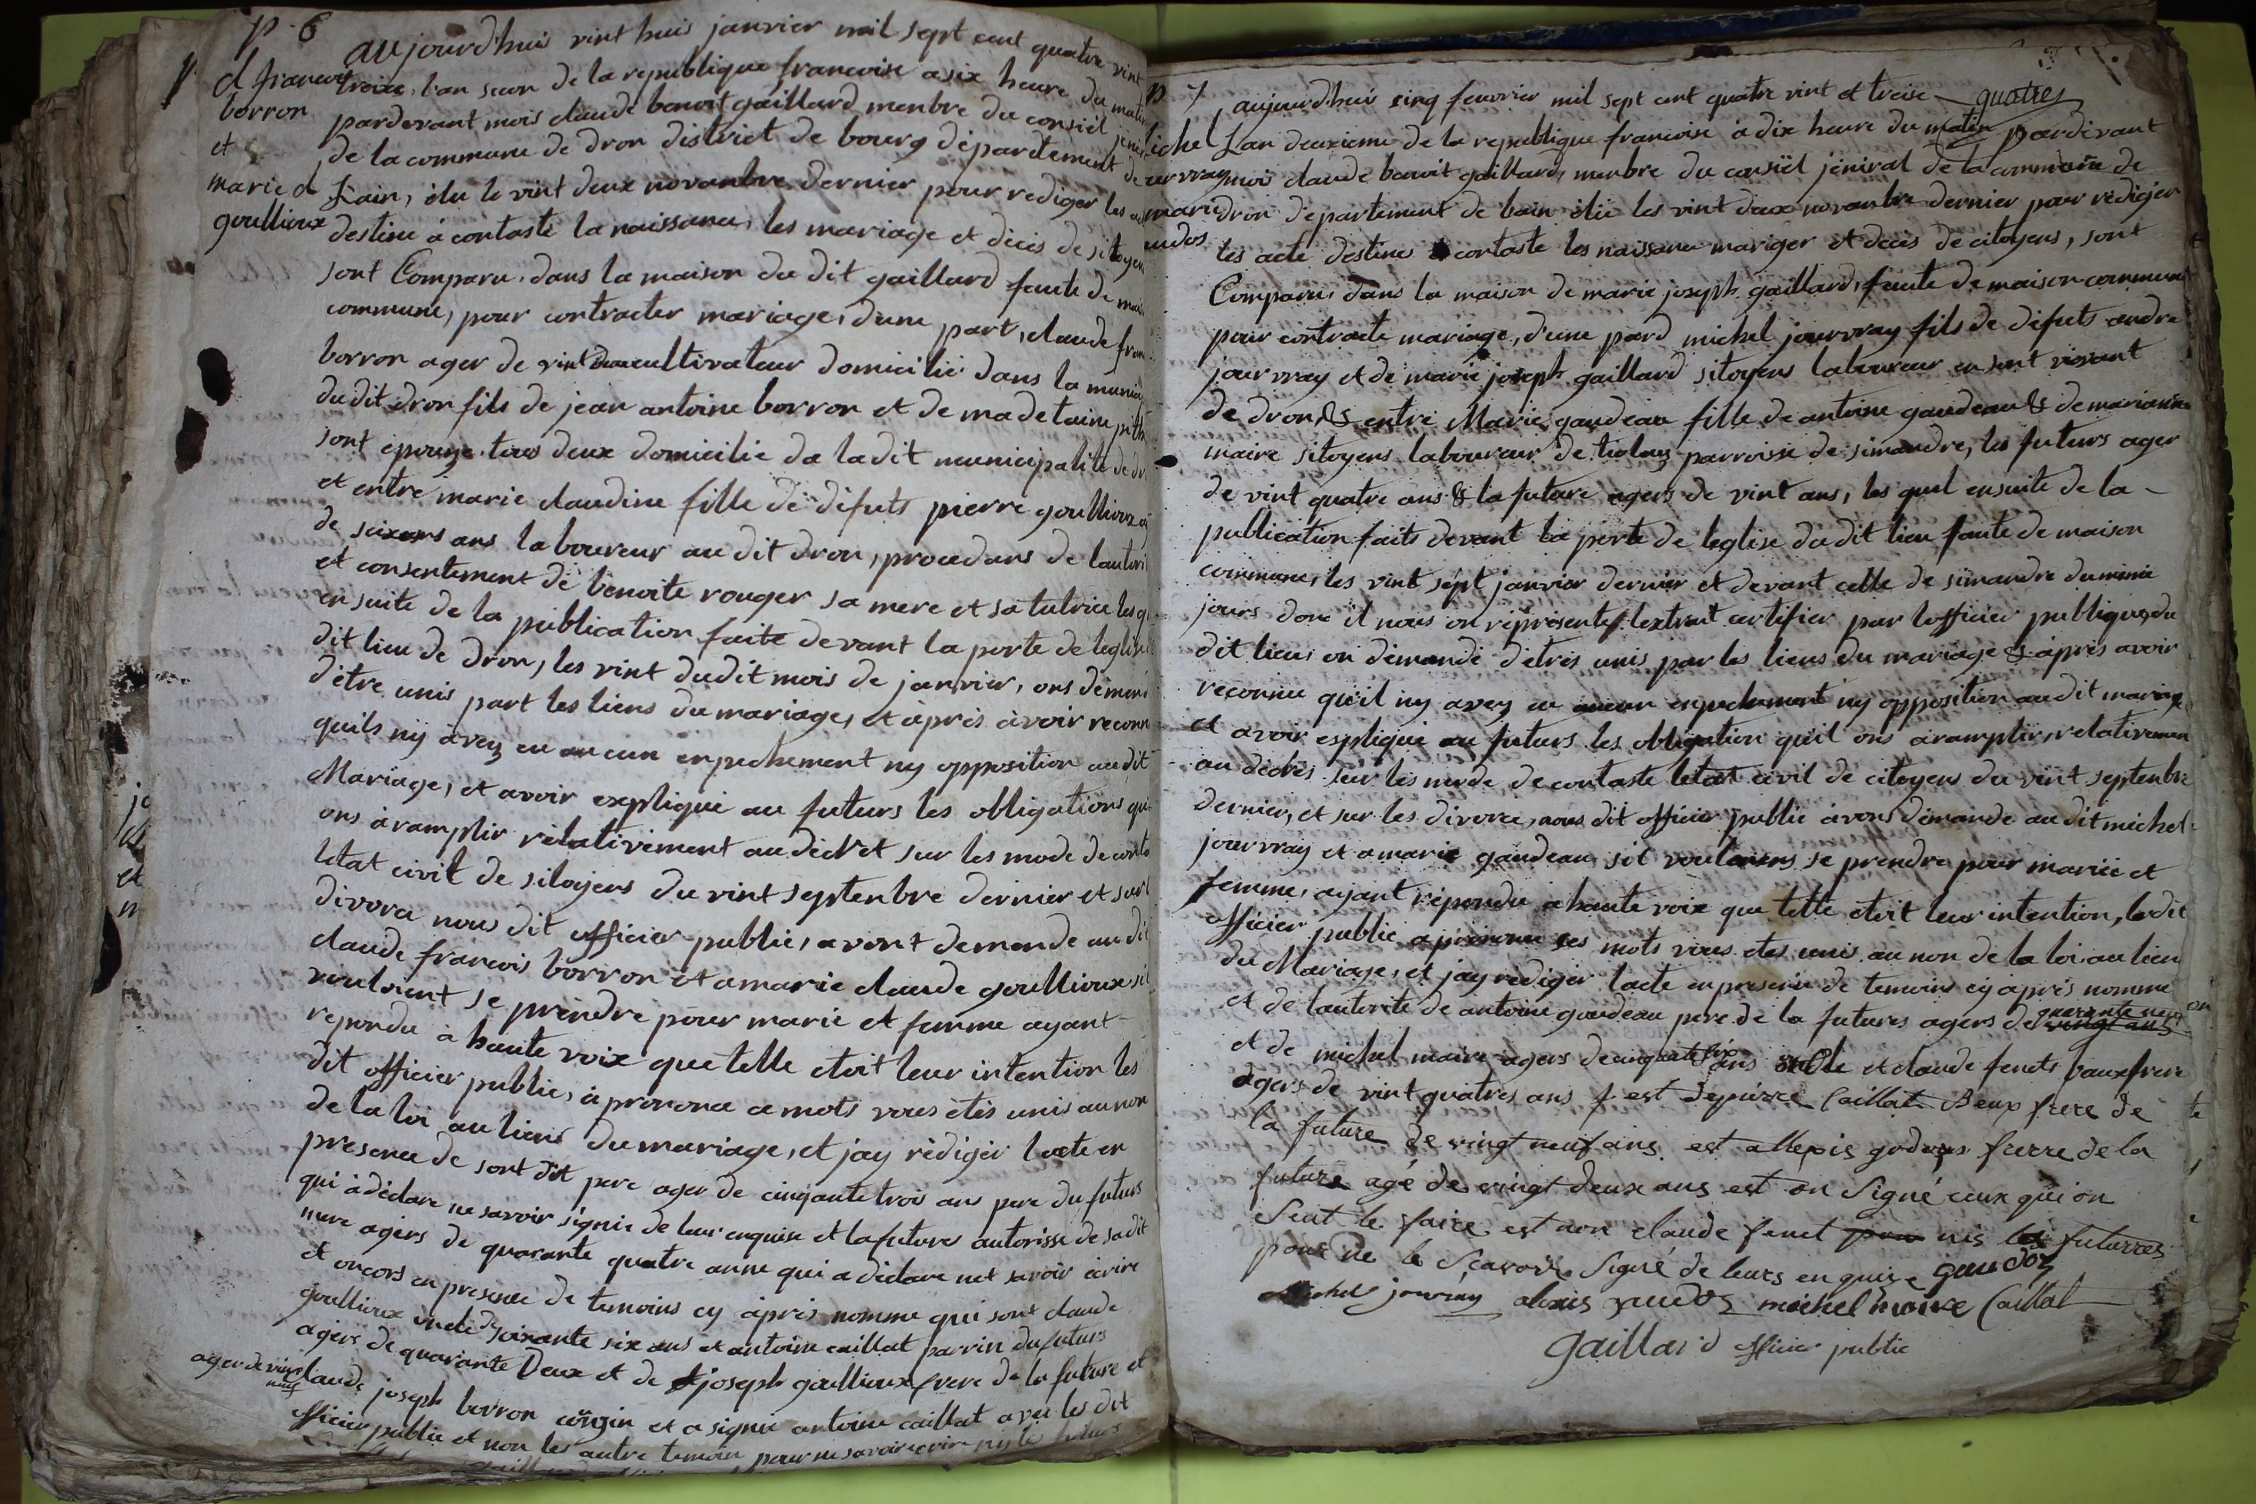 p. 6
aujourd'huis vint huis janvier mil sept cent quatre vint
treize, l'an secon de la republique francoise a six heure du matin
pardevant mois claude benoit gaillard menbre du consiel
de la commune de dron district de bourg département de
Lain, élu le vint deux novanbre dernier pour rediger les
destine à contaste la naissance, les mariage et décès de sitoyen
sont Comparu dans la maison du dit gaillard faute de
commune, pour contracter mariage, dune part, claude
borron ager de vint cultivateur domicilié dans la
du dit dron fils de jean antoine borron et de madelaine
sont épouze tous deux domicilie de la dit municipalité de
et entre marie claudine fille de défuts pierre goullioux
de ans laboureur au dit dron, procedans de
et consentement de benoite rouger sa mere et sa tutrice
en suite de la publication faite devant la porte de
dit lieu de dron, les vint du dit mois de janvier, ons
d'être unis part les liens du mariage, et après àvoir
quils nÿ àvez eu aucun enpechement ny opposition audit
Mariage, et avoir expliqué au futurs les obligations
ons àramplir rélativement au décret sur les mode de
létat civil de sitoyens du vint septenbre dernier et sur
divorce nous dit officier public, avont demande au dit
claude francois borron et a marie claude goullioux
vouloient se prendre pour marie et femme ayant
repondu à haute voix que telle etoit leur intention les
dit officier public, à prononce ce mots vous êtes unis au non
de la loi au liens du mariage, et jay rédiger lacte en
presence de sont dit pere ager de cinquante trois ans pere du futurs
qui à déclare ne savoir signie de leur enquise et la future autorisse de sa dit
mere agers de quarante quatre anne qui a déclare net savoir écrire
et oncors en presence de temoins cy àprès nomme qui sont claude
goullioux oncle de soixante six ans et antoine caillat parrin du futurs
agers de quarante Deux et de joseph goullioux frere de la future et
claude joseph borron et a signie antoine caillat avec les dit
officier public et non les autre temoin pour ne savoir ecrire
d francois
borron
et
marie d
goullioux
ager de vint
neuf
p 7
aujourdhuis cinq feuvrier mil sept cent quatre vint et treise quatre
Lan deuxieme de la republique francoise à dix heure du matin pardevant
mois claude benoit gaillard, menbre du consiel jéniral de la commune de
dron département de élü les vint deux novanbre dernier pour rédiger
les acte destines à contaste les naissance mariger et décès de citoyens, sont
Comparu, dans la maison de marie joseph gaillard, faute de maison commune
pour contracte mariage, d'une pard michel jourvray fils de défuts andre
jourvray et de marie joseph gaillard sitoyens laboureur en sont vivant
de dron & entre Marie gaudeau fille de antoine gaudeau & de marianne
maire sitoyens laboureur de parroisse de simandre, les futurs ager
de vint quatre ans & la future agers de vint ans, les quel ensuite de la
publication faits devant la porte de léglise du dit lieu faute de maison
commune, les vint sépt janvier dernier et devant celle de simandre du mime
jours donc il nous on réprésente lextrait certifier par lofficier publique du
dit lieu, on démandé d'être unis par les liens du mariage & àprès avoir
reconnue qu'il ny avez eu aucun enpechement ny opposition au dit mariage
et avoir esplique au futurs les obligation quil ons àramplir, relativemen
au décrès sur les mode de contaste letat civil de citoyens du vint septenbre
dernier, et sur les divorce, nous dit officier public avons démande au dit michel
jourvray et a marie gaudeau sil se prendre pour mariée et
femme, ayant répondu a haute voix que telle étoit leur intention, le dit
officier public a prononce ces mots vous etes unis au non de la loi au lien
du Mariage, et jay rediger lacte en presence de temoins cy àprès nomme
et de lautorite de antoine gaudeau pere de la futures agers de quarante neuf an
et de michel maire agers de cinquante six ans oncle et claude fenets baux frere
agers de vint quatres ans est depierre Caillat Beux frere de
la future de vingt neuf ans est allexis frerre de la
future agé de vingt deux ans est on Signé ceux qui on
Seut le faire est non claude fenet nis les futurres
pour ne le Scavoir Signé de leurs enquise gaudoz
michel jourvray alexis gaudoz michel maire Caillat
gaillard officier public